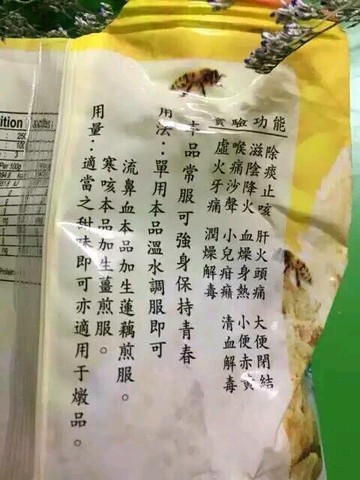 實驗功能
除痰止咳 肝火頭痛 大便閉結
滋陰降火 血燥身熱 小便赤黃
喉痛沙聲 小兒疳癪 清血解毒
虛火牙痛 潤燥解毒
本品常服可強身保持青春
用法：單用本品溫水調服即可
流鼻血本品加生蓮藕煎服。
寒咳本品加生薑煎服。
用量：適當之甜味即可亦適用于燉品。